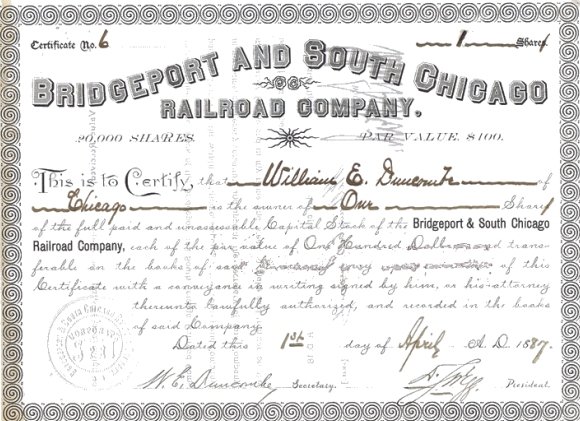 Certificate No. 6 1 Share
BRIDGEPORT AND SOUTH CHICAGO
RAILROAD COMPANY.
20,000 SHARES. PAR VALUE, $100.
This is to Certify, that William E. Duncombe of
Chicago is the owner of One Share
of the full paid and unassessable Capital Stock of the Bridgeport & South Chicago
Railroad Company, each of the par value of One Hundred Dollars and trans-
ferable on the books of said of this
Certificate with a conveyance in writing signed by him, or his attorney
thereunto lawfully authorized, and recorded in the books
of said Company.
Dated this 1st day of April A.D. 1887.
W. E. Duncombe Secretary. President.